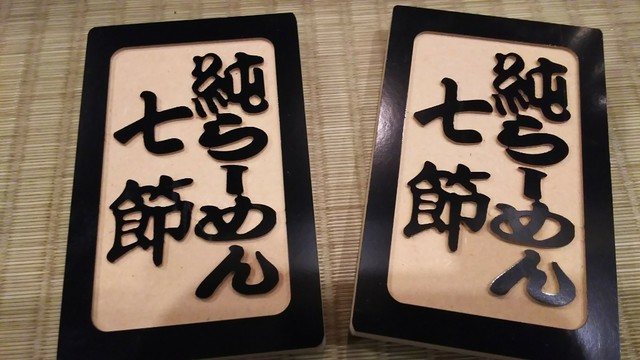 純らーめん
七節
純らーめん
七節